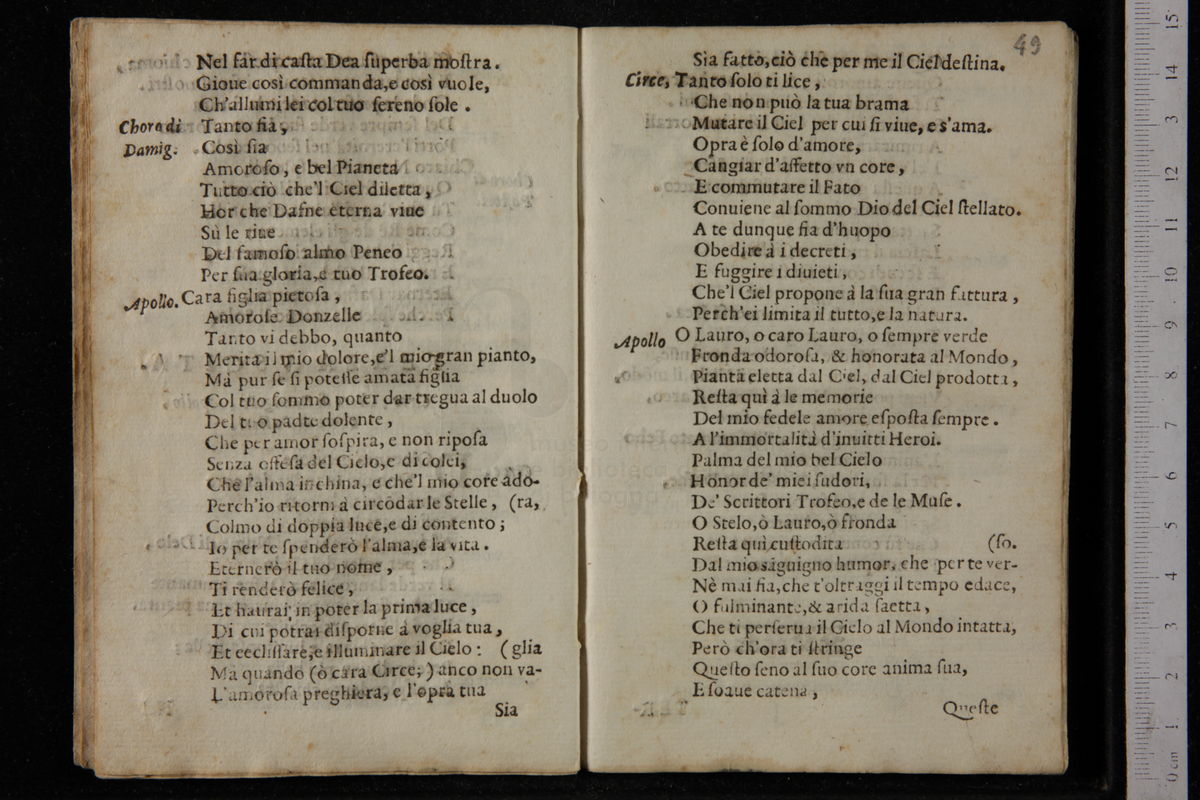 Nel far di casta Dea superba mostra.
Gioue così commanda,e così vuole,
Ch'allumi lei col tuo sereno sole.
Choro di Damig. Tanto fia,
Così sia
Amoroso, e bel Pianeta
Tutto ciò che'l Ciel diletta,
Hor che Dafne eterna viue
Sù le riue
Del famoso almo Peneo
Per sua gloria,e tuo Trofeo.
Apollo. Cara figlia pietosa,
Amorose Donzelle
Tanto vi debbo, quanto
Merita il mio dolore,e'l mio gran pianto,
Mà pur se si potesse amata figlia
Col tuo sommo poter dar tregua al duolo
Del tuo padre dolente,
Che per amor sospira, e non riposa
Senza offesa del Cielo,e di colei,
Che l'alma inchina, e che'l mio core ado-
Perch'io ritorni à circodar le Stelle, (ra,
Colmo di doppia luce,e di contento;
Io per te spenderò l'alma,e la vita.
Eternerò il tuo nome,
Ti renderò felice,
Et haurai; in poter la prima luce,
Di cui potrai disporne à voglia tua,
Et eeclissare,e illuminare il Cielo: (glia
Ma quando (ò cara Circe;) anco non va-
L'amorosa preghiera, e l'opra tua
Sia
49
Sia fatto,ciò che per me il Ciel destina.
Circe, Tanto solo ti lice,
Che non può la tua brama
Mutare il Ciel per cui si viue, e s'ama.
Opra è solo d'amore,
Cangiar d'affetto vn core,
E commutare il Fato
Conuiene al sommo Dio del Ciel stellato.
A te dunque fia d'huopo
Obedire à i decreti,
E fuggire i diuieti,
Che'l Ciel propone à la sua gran fattura,
Perch'ei limita il tutto,e la natura.
Apollo O Lauro, o caro Lauro, o sempre verde
Fronda odorosa, & honorata al Mondo,
Pianta eletta dal Ciel, dal Ciel prodotta,
Resta quì à le memorie
Del mio fedele amore esposta sempre.
A l'immortalità d'inuitti Heroi.
Palma del mio bel Cielo
Honor de' miei sudori,
De' Scrittori Trofeo,e de le Muse.
O Stelo,ò Lauro,ò fronda
Resta quì custodita (so.
Dal mio sãguigno humor, che per te ver-
Nè mai fia,che t'oltraggi il tempo edace,
O fulminante,& arida saetta,
Che ti perserua il Cielo al Mondo intatta,
Però ch'ora ti stringe
Questo seno al suo core anima sua,
E soaue catena,
Queste